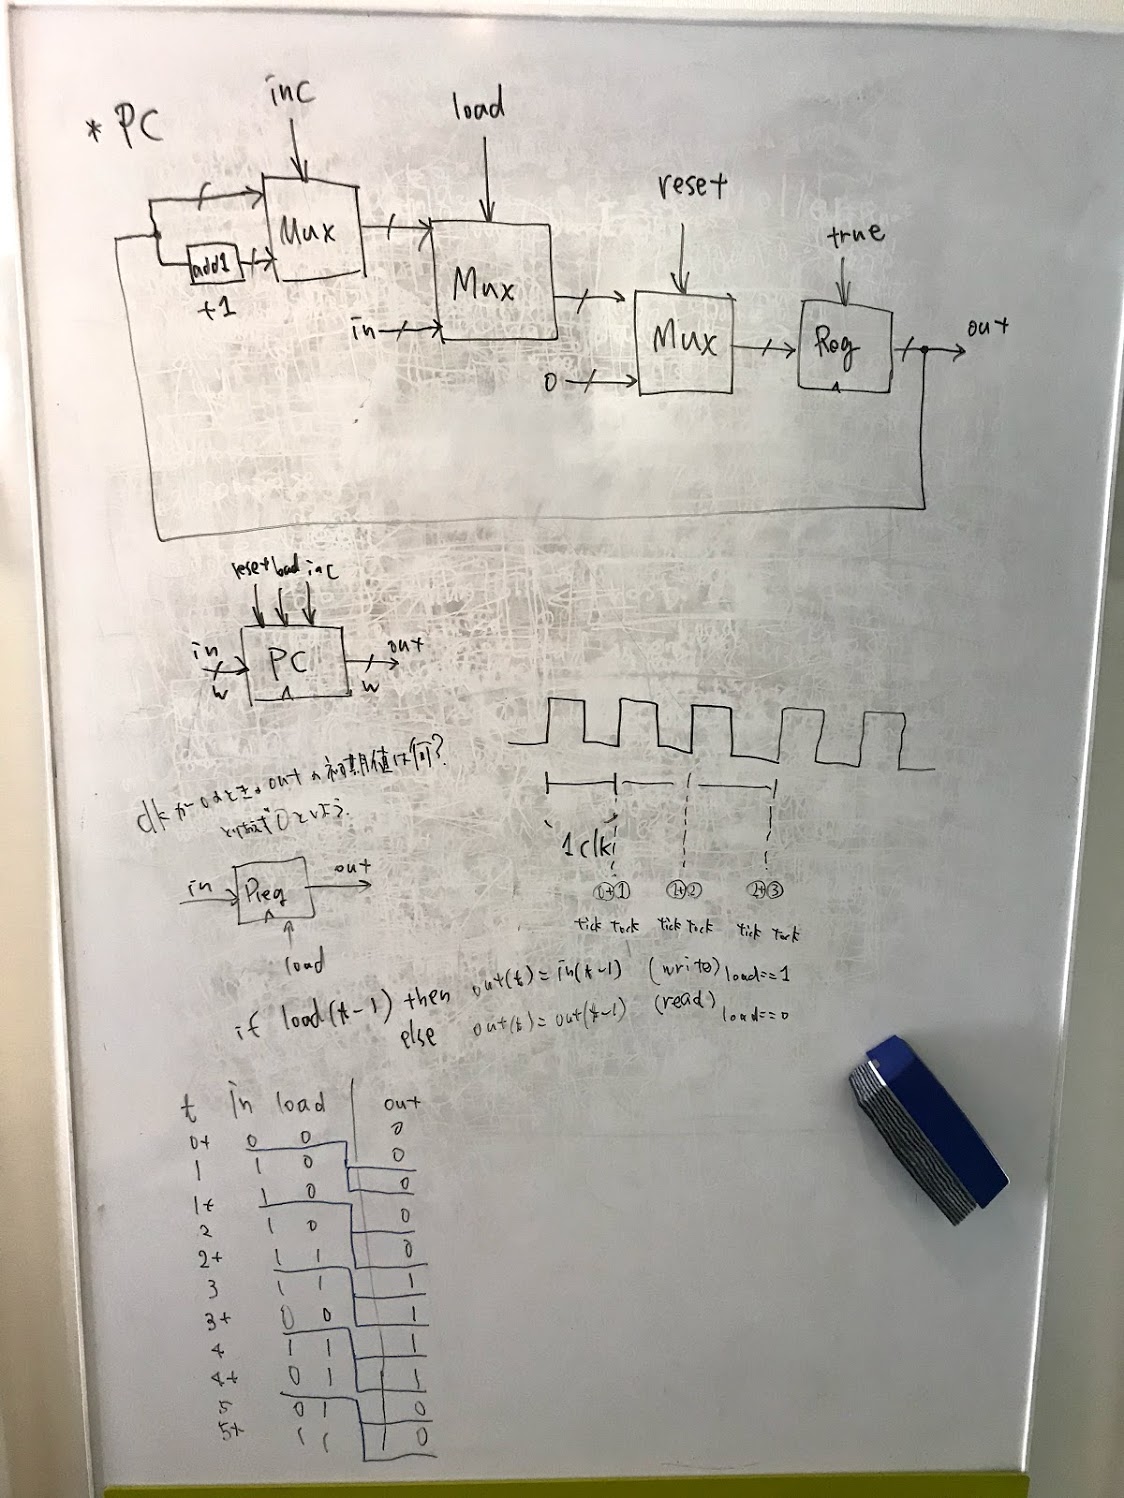 * PC
inc
load
reset
true
Mux
add1
+1
Mux
in
Mux
0
Reg
out
reset load inc
in
PC
out
w
w
clkが0のときのoutの初期値は何?
とりあえず0としよう.
1clk
0+ 1
1+ 2
2+ 3
tick tock tick tock tick tock
in
Reg
out
load
if load(t-1) then out(t) = in(t-1) (write) load==1
else out(t) = out(t-1) (read) load==0
t in load out
0+ 0 0 0
1 1 0 0
1+ 1 0 0
2 1 0 0
2+ 1 1 0
3 1 1 1
3+ 0 0 1
4 1 1 1
4+ 0 1 1
5 0 1 0
5+ 1 1 0